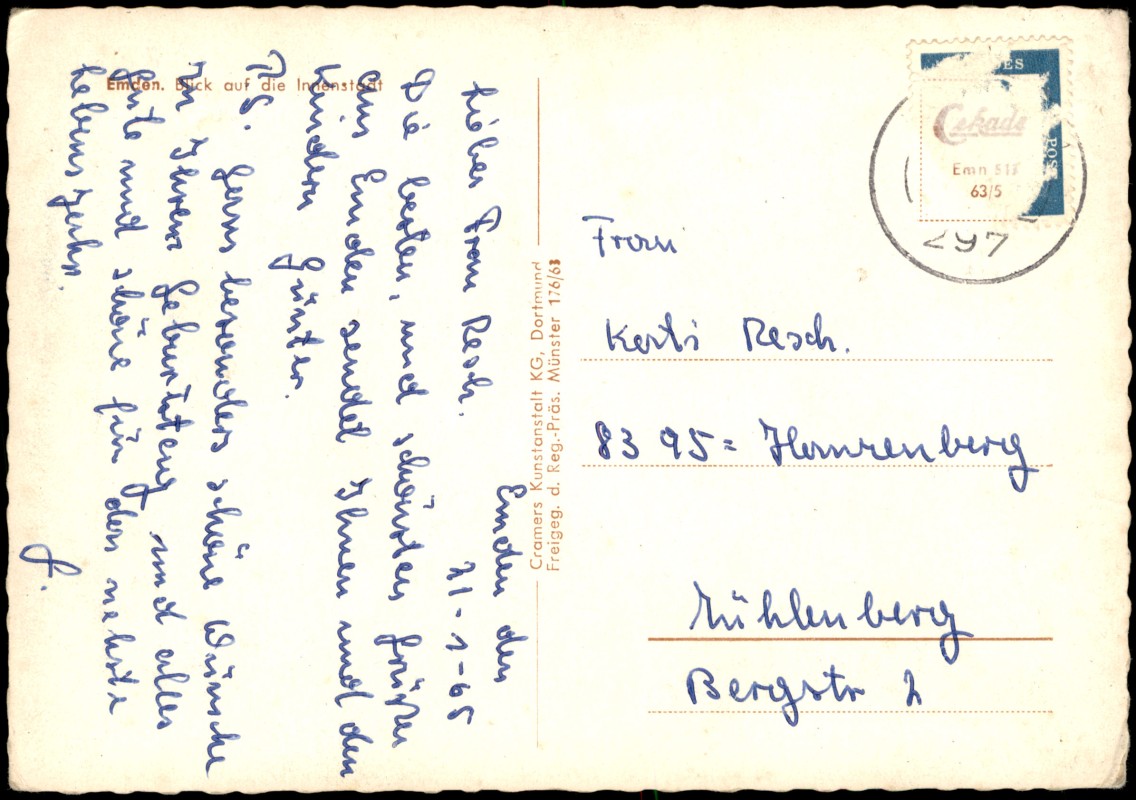 Emden. Blick auf die Innenstadt
Emden den
21-1-65
Liebes Frau Resch.
Die besten, und schönsten Grüße
aus Emden sendet Ihnen und den
Kindern Günter.
PS.
Ganz besonders schöne Wünsche
zu Ihren Geburtstag und alles
Gute und schöne für das nehste
Lebensjahr.
G.
Cramers Kunstanstalt KG, Dortmund
Freigeg. d. Reg.-Präs. Münster 176/63
Cekade
Emn 518
63/5
POST
297
Frau
Kerti Resch.
8395= Hauzenberg
Mühlenberg
Bergstr 2